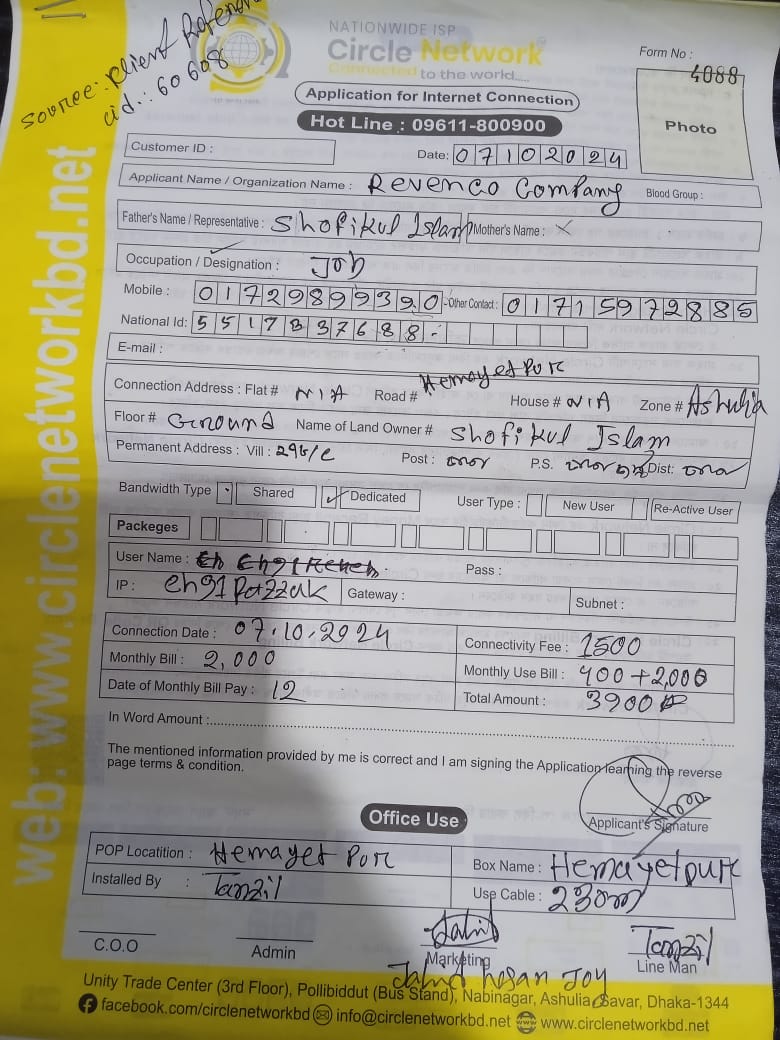 source: Client Reference
cid.: 60608
NATIONWIDE ISP
Circle Network
Connected to the world.....
Form No :
4088
Application for Internet Connection
Hot Line : 09611-800900
Photo
Customer ID :
Date: 07102024
Applicant Name / Organization Name : Revenco Company Blood Group :
Father's Name / Representative : Shofikul Islam Mother's Name : X
Occupation / Designation : Job
Mobile : 01729899390 Other Contact : 01715972885
National Id: 5517837688
E-mail :
Connection Address : Flat # N/A Road # Hemayet Pur House # N/A Zone # Ashulia
Floor # Ground Name of Land Owner # Shofikul Islam
Permanent Address : Vill : 296/c Post : P.S. Dist:
Bandwidth Type Shared ✓ Dedicated User Type : New User Re-Active User
Packeges
User Name : Pass :
IP : eng1Razzak Gateway : Subnet :
Connection Date : 07.10.2024 Connectivity Fee : 1500
Monthly Bill : 2,000 Monthly Use Bill : 400+2,000
Date of Monthly Bill Pay : 12 Total Amount : 3900
In Word Amount :
The mentioned information provided by me is correct and I am signing the Application learning the reverse
page terms & condition.
Applicant's Signature
Office Use
POP Locatition : Hemayet Pur Box Name : Hemayetpur
Installed By : Tanzil Use Cable : 230m
Tanzil
C.O.O Admin Marketing Line Man
Jahid hosan Joy
Unity Trade Center (3rd Floor), Pollibiddut (Bus Stand), Nabinagar, Ashulia Savar, Dhaka-1344
facebook.com/circlenetworkbd info@circlenetworkbd.net www.circlenetworkbd.net
web: www.circlenetworkbd.net